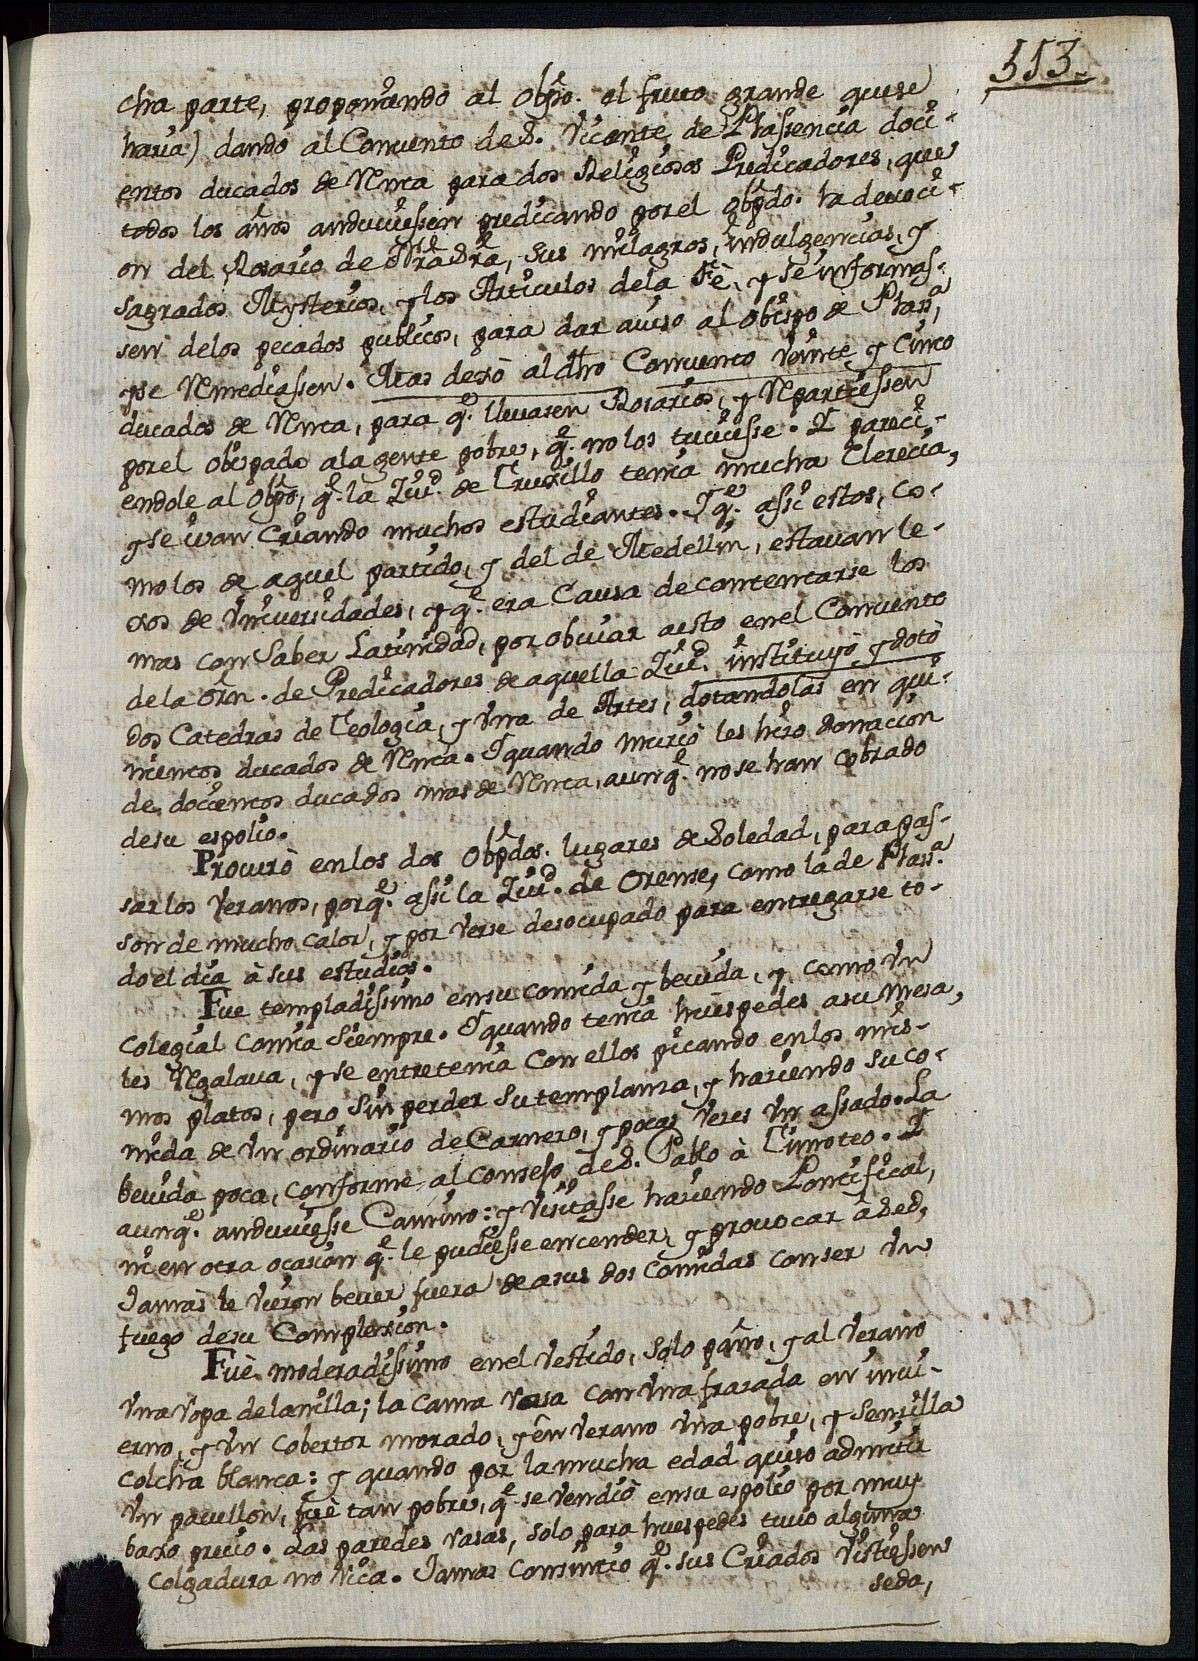 553.
cha parte, proponiendo al Obpo. el fruto grande que se
haria) dando al Convento de S. Vicente de Plassencia doci-
entos ducados de Renta para dos Religiosos Predicadores, que
todos los años anduviessen predicando por el Obpdo. la devoci-
on del Rosario de Nra Sra, sus milagros, indulgencias, y
sagrados Mysterios, y los Articulos dela Fè, y se informas-
sen delos pecados publicos, para dar aviso al Obispo de Plasa,
y se Remediassen. Mas dexò al dho Convento veinte y Cinco
ducados de Renta, para q. llevasen Rosarios, y Repartiessen
por el Obispado ala gente pobre, q. no los tuviesse. Y pareci-
endole al Obpo, q. la Ziud. de Truxillo tenia mucha Clerecia,
y se ivan Criando muchos estudiantes. Y q. assi estos, co-
mo los de aquel partido, y del de Medellin, estavan le-
xos de Vniversidades, y q. era Causa de contentarse los
mas con Saber Latinidad, por obviar aesto enel Convento
dela Orn. de Predicadores de aquella Ziud. instituyò y dotò
dos Catedras de Teologia, y vna de Artes, dotandolas en qui-
nientos ducados de Renta. Y quando muriò les hizo donacion
de docientos ducados mas de Renta, aunq. no se han Cobrado
desu espolio.
Procurò enlos dos Obpdos. lugares de Soledad, para pas-
sar los Veranos, porq. assi la Ziud. de Orense, como la de Plasa.
son de mucho calor, y por verse desocupado para entregarse to-
do el dia à sus estudios.
Fue templadissimo ensu comida y bevida, y como vn
Colegial comia siempre. Y quando tenia huespedes asu mesa,
les Regalava, y se entretenia Con ellos picando enlos mis-
mos platos, pero sin perder su templanza, y haziendo su co-
mida de vn ordinario de Carnero, y pocas vezes vn assado. La
bevida poca, conforme al consejo de S. Pablo à Timoteo. Y
aunq. anduviesse Camino: y visitasse haziendo Pontifical,
ni en otra ocasion q. le pudiesse encender, y provocar à sed,
Jamàs le vieron bever fuera de asus dos Comidas con ser vn
fuego desu Complexion.
Fuè moderadissimo enel Vestido, solo paño, y al verano
vna ropa delanilla; la cama rasa con vna frazada en invi-
erno, y vn cobertor morado, y en verano vna pobre, y senzilla
colcha blanca: y quando por la mucha edad quiso admitir
vn pavellon, fuè tan pobre, q. se vendiò ensu espolio por muy
baxo precio. Las paredes rasas, solo para huespedes tuvo alguna
Colgadura no rica. Jamas Consintiò q. sus Criados vistiessen
seda,